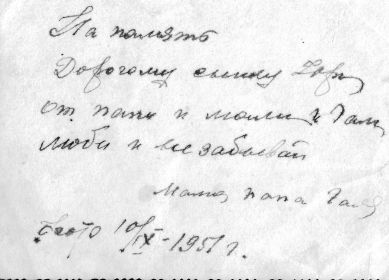 На память
Дорогому сынку Юри
от папы и мамы и Гали
люби и не забывай
Мама папа Галя
фото 10/IX-1951 г.